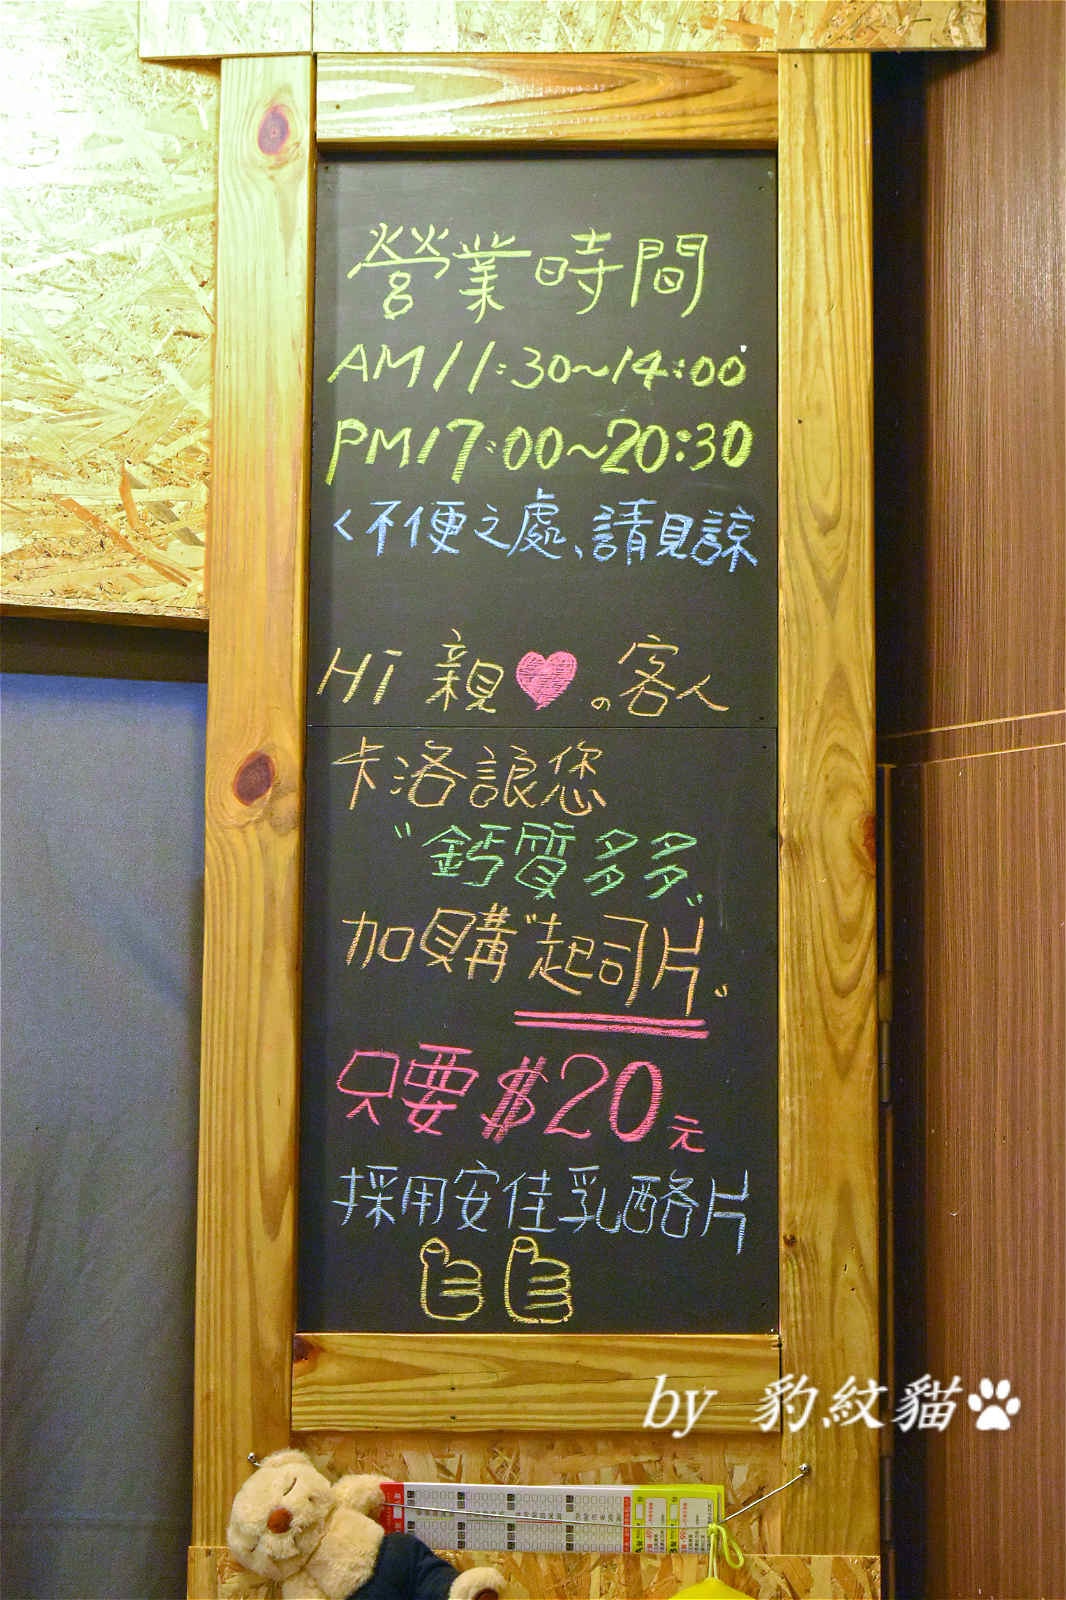 營業時間
AM11:30~14:00
PM17:00~20:30
<不便之處、請見諒
Hi 親❤の客人
卡洛讓您
"鈣質多多"
加購"起司片"
只要 $20元
採用安佳乳酪片
by 豹紋貓